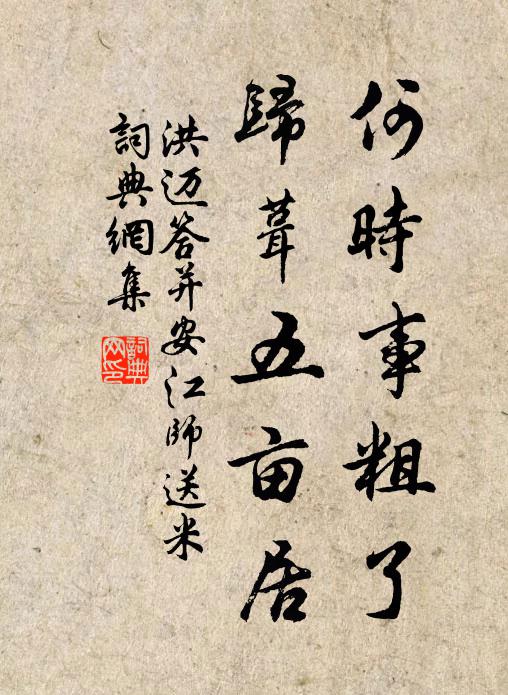 何時事粗了
歸葺五亩居
洪迈答并安江師送米
詞典網集
詞典网印